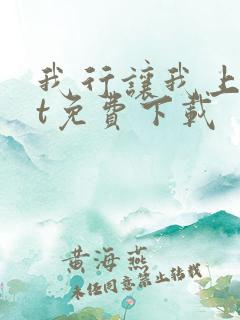 我行讓我上
t免費下載
黄海燕
未经同意禁止转载